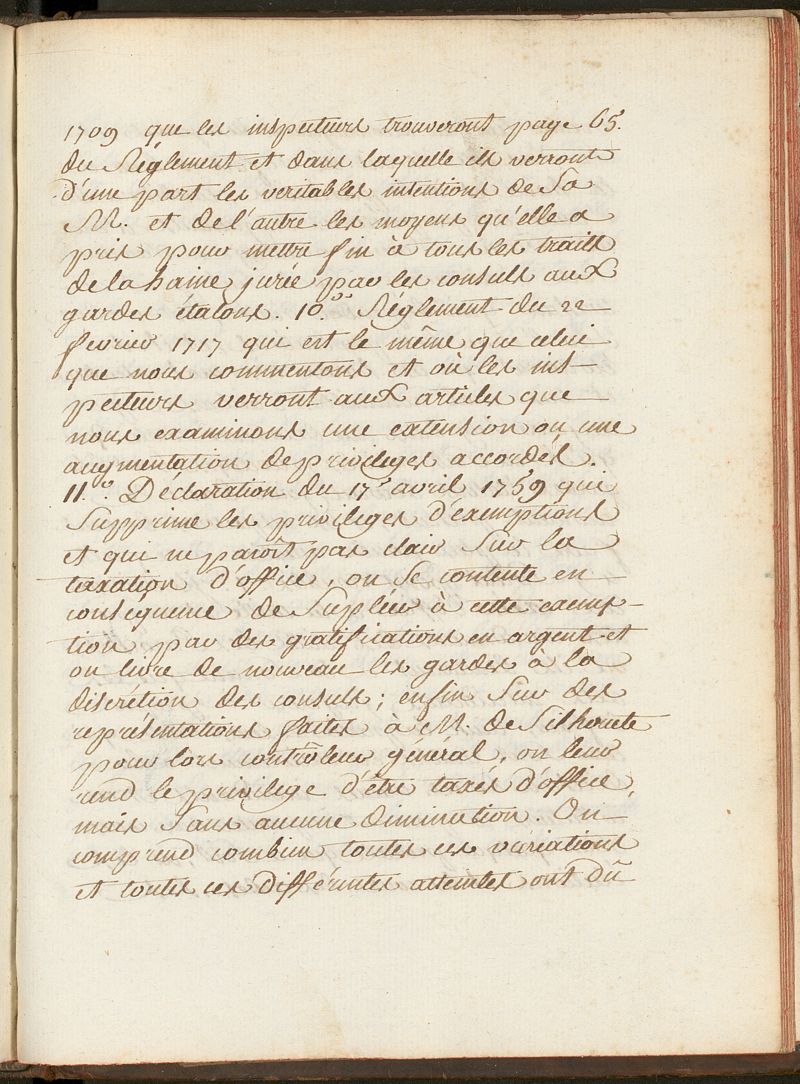 1709 que les inspecteurs trouveront page 65.
du Réglement et dans laquelle ils verront
d'une part les veritables intentions de Sa
M. et de l'autre les moyens qu'elle a
pris pour mettre fin à tous les traits
de la haine jurée par les consuls aux
gardes étalons. 10.º Réglement du 22
fevrier 1717 qui est le même que celui
que nous commentons et où les ins-
pecteurs verront aux articles que
nous examinons une extension ou une
augmentation de privileges accordés.
11.º Déclaration du 17.e avril 1759 qui
Supprime les privileges d'exemptions
et qui ne paroît pas clair Sur la
taxation d'office, on Se contente en
consequence de Supléer à cette exemp-
tion par des gratifications en argent et
on livre de nouveau les gardes à la
discrétion des consuls; enfin Sur des
représentations faites à M. de Silhouete
pour lors contrôleur general, on leur
rend le privilege d'être taxés d'office,
mais Sans aucune diminution. On
comprend combien toutes ces variations
et toutes ces différentes atteintes ont dû